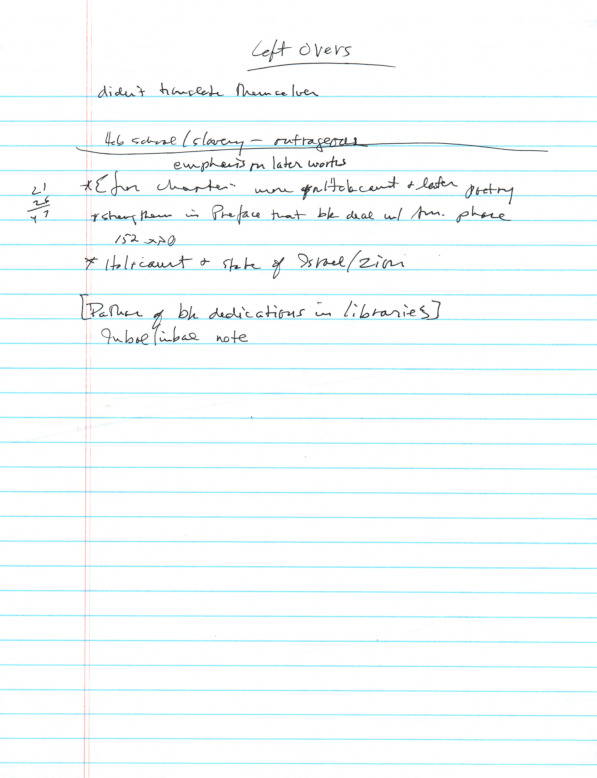 Left Overs
didn't translate themselves
Heb school/slavery – outrageous
emphasis on later works
* Efros chapter - more on Holocaust + later poetry
21
26
47
* strengthen in Preface that bk deal w/ Am. phase
152
* Holocaust + state of Israel/Zion
[Pathos of bk dedications in libraries]
Inbal/inbal note